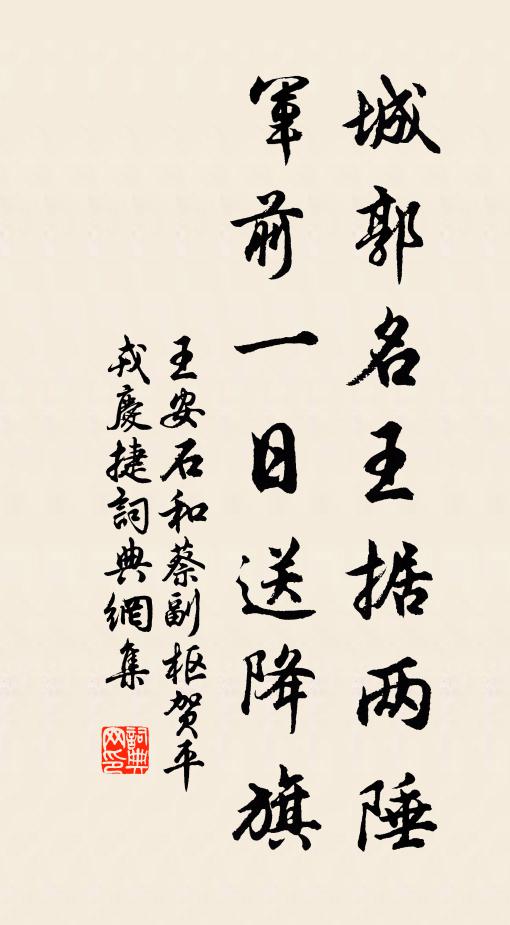 城郭名王据两陲
军前一日送降旗
王安石和蔡副枢贺平
戎慶捷詞典網集
詞典网印